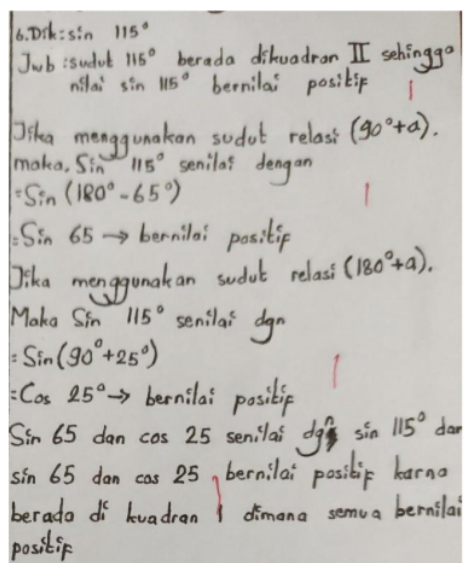 6.Dik:sin 115°
Jwb:sudut 115° berada dikuadran II sehingga
nilai sin 115° bernilai positif
Jika menggunakan sudut relasi (90°+a).
maka, Sin 115° senilai dengan
=Sin (180°-65°)
=Sin 65 → bernilai positif
Jika menggunakan sudut relasi (180°+a).
Maka Sin 115° senilai dgn
=Sin(90°+25°)
=Cos 25° → bernilai positif
Sin 65 dan cos 25 senilai dgn sin 115° dan
sin 65 dan cos 25, bernilai positif karna
berada di kuadran 1 dimana semua bernilai
positif